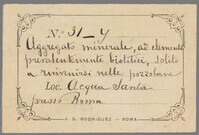 N.º 31-Y
Aggregato minerale, ad elementi
prevalentemente biotitici, solito
a rinvenirsi nelle pozzolane
Loc. Acqua Santa
presso Roma
A. S. RODRIGUEZ - ROMA